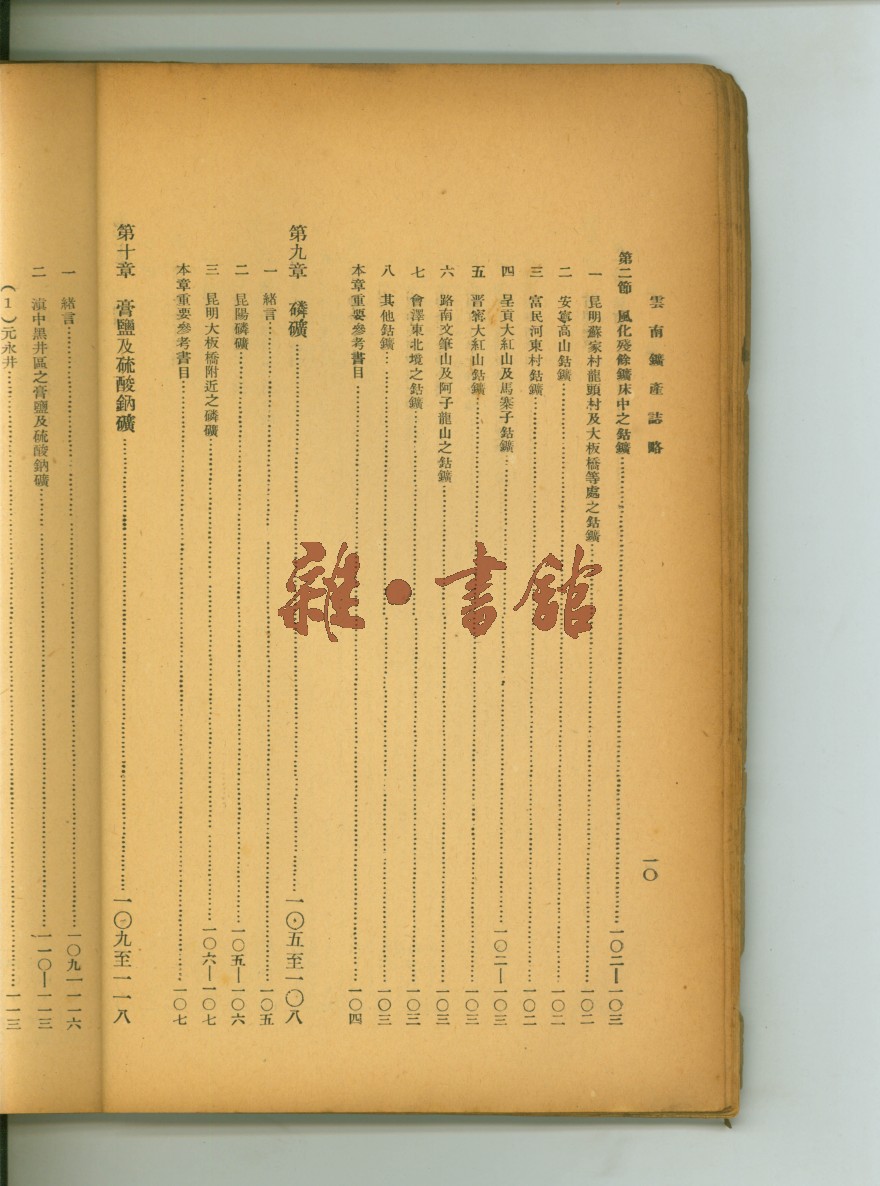 雲南鑛產誌略
一〇
第二節 風化殘餘鑛床中之鈷鑛……一〇二—一〇三
一 昆明蘇家村龍頭村及大板橋等處之鈷鑛……一〇二
二 安寧高山鈷鑛……一〇二
三 富民河東村鈷鑛……一〇二
四 呈貢大紅山及馬寨子鈷鑛……一〇二—一〇三
五 晋寗大紅山鈷鑛……一〇三
六 路南文筆山及阿子龍山之鈷鑛……一〇三
七 會澤東北境之鈷鑛……一〇三
八 其他鈷鑛……一〇三
本章重要參考書目……一〇四
第九章 磷鑛……一〇五至一〇八
一 緒言……一〇五
二 昆陽磷鑛……一〇五—一〇六
三 昆明大板橋附近之磷鑛……一〇六—一〇七
本章重要參考書目……一〇七
第十章 膏鹽及硫酸鈉鑛……一〇九至一一八
一 緒言……一〇九一一六
二 滇中黑井區之膏鹽及硫酸鈉鑛……一一〇—一一三
(1)元永井……一一三
雜·書館